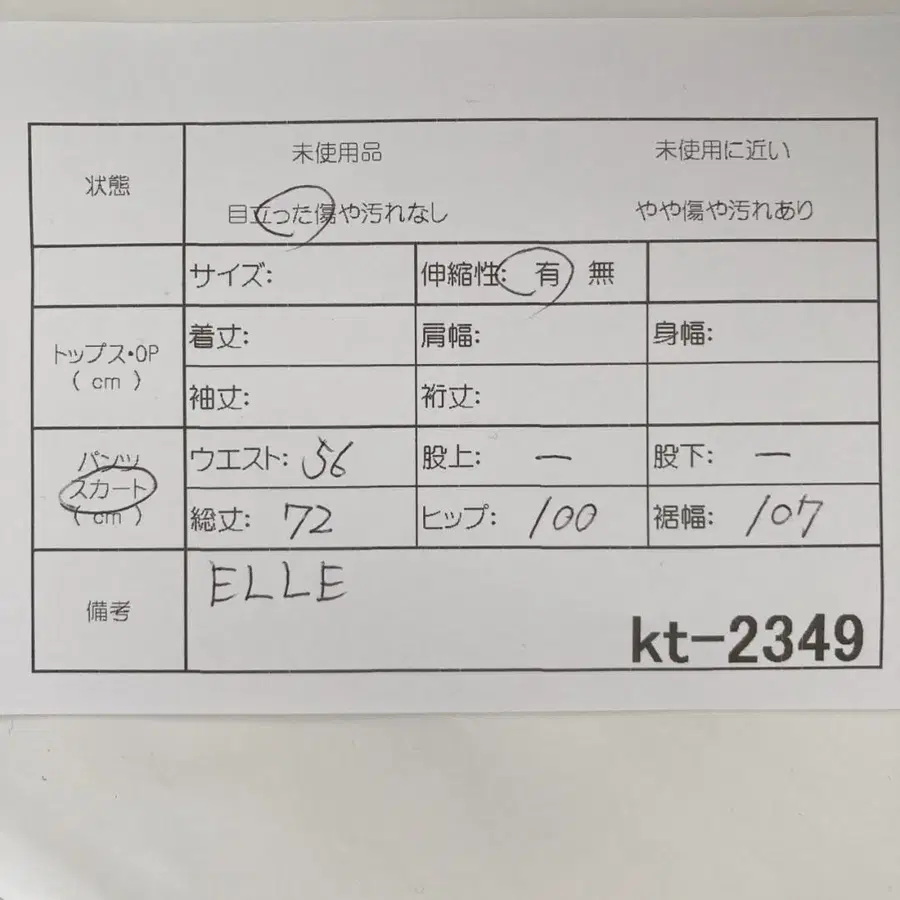 状態 未使用品 未使用に近い
目立った傷や汚れなし やや傷や汚れあり
サイズ: 伸縮性: 有 無
トップス・OP
( cm )
着丈: 肩幅: 身幅:
袖丈: 裄丈:
パンツ
スカート
( cm )
ウエスト: 56 股上: ー 股下: ー
総丈: 72 ヒップ: 100 裾幅: 107
備考
ELLE
kt-2349